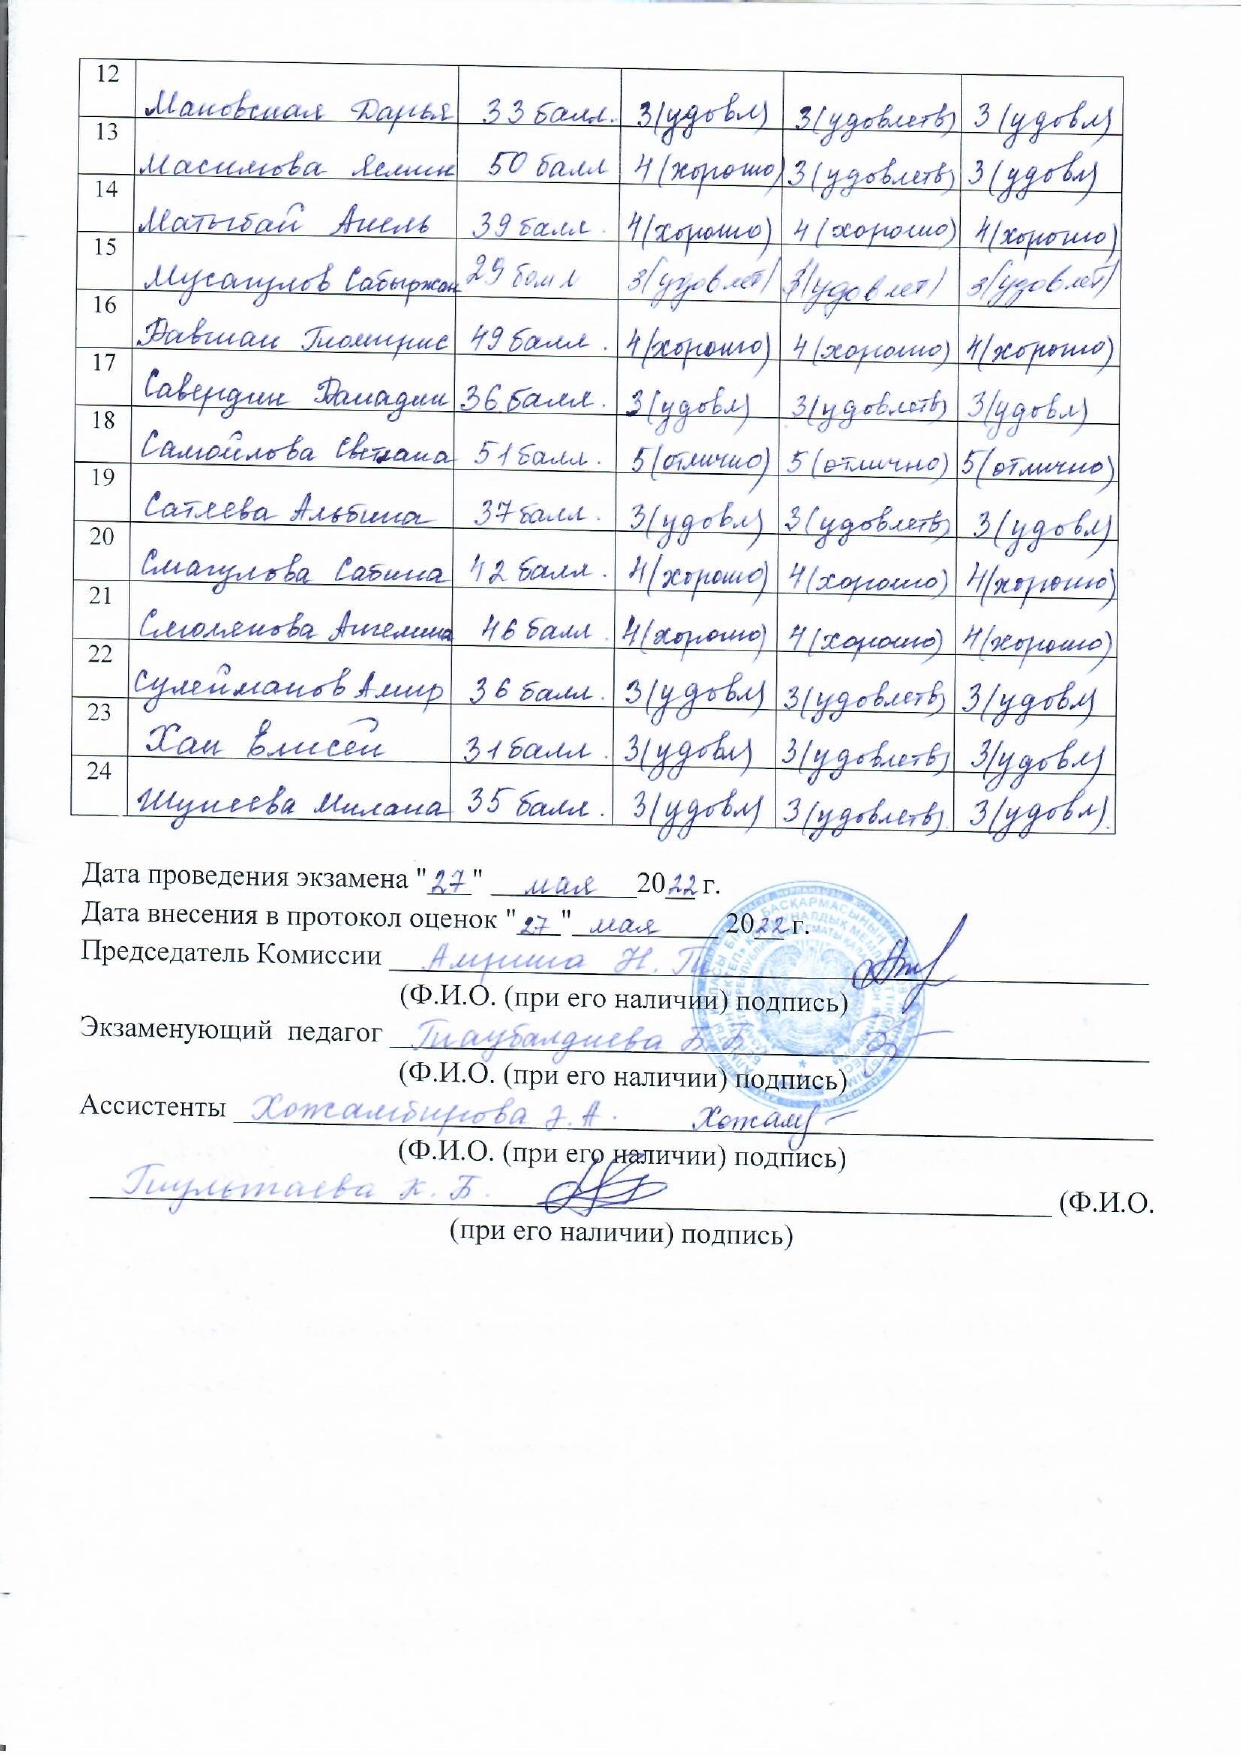 12 Мановская Дарья 33 балл. 3(удовл) 3(удовлетв) 3(удовл)
13 Масимова Ясмин 50 балл 4(хорошо) 3(удовлетв) 3(удовл)
14 Матыбай Анель 39 балл. 4(хорошо) 4(хорошо) 4(хорошо)
15 Мусагулов Сабыржан 29 балл 3(удовлет) 3(удовлет) 3(удовлет)
16 Равшан Томирис 49 балл. 4(хорошо) 4(хорошо) 4(хорошо)
17 Савердин 36 балл. 3(удовл) 3(удовлетв) 3(удовл)
18 Самойлова Светлана 51 балл. 5(отлично) 5(отлично) 5(отлично)
19 Сатяева Альбина 37 балл. 3(удовл) 3(удовлетв) 3(удовл)
20 Смагулова Сабина 42 балл. 4(хорошо) 4(хорошо) 4(хорошо)
21 Смолянова Ангелина 46 балл. 4(хорошо) 4(хорошо) 4(хорошо)
22 Сулейманов Амир 36 балл. 3(удовл) 3(удовлетв) 3(удовл)
23 Хан Елисей 31 балл. 3(удовл) 3(удовлетв) 3(удовл)
24 Шунеева Милана 35 балл. 3(удовл) 3(удовлетв) 3(удовл).
Дата проведения экзамена "27" мая 2022 г.
Дата внесения в протокол оценок "27" мая 2022 г.
Председатель Комиссии Н.
(Ф.И.О. (при его наличии) подпись)
Экзаменующий педагог Тлаубалдиева Б. Б.
(Ф.И.О. (при его наличии) подпись)
Ассистенты Хожамбирова Хожам
(Ф.И.О. (при его наличии) подпись)
К. Б. (Ф.И.О.
(при его наличии) подпись)